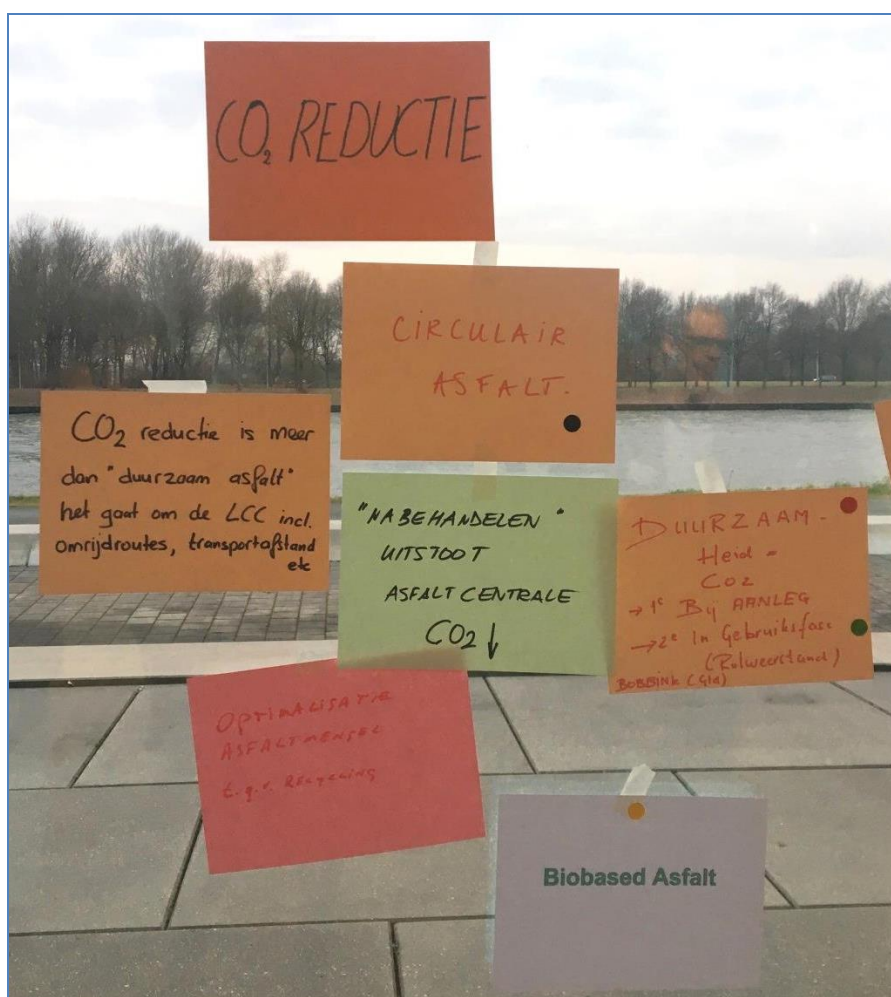 CO₂ REDUCTIE
CIRCULAIR
ASFALT.
CO₂ reductie is meer
dan "duurzaam asfalt"
het gaat om de LCC incl.
omrijdroutes, transportafstand
etc
"NABEHANDELEN"
UITSTOOT
ASFALT CENTRALE
CO₂ ↓
DUURZAAM -
Heid =
CO2
→ 1e By AANLEG
→ 2e In Gebruiksfase
(Rolweerstand)
BOBBINK (Gld)
OPTIMALISATIE
ASFALTMENGSEL
t.g.v. Recycling
Biobased Asfalt